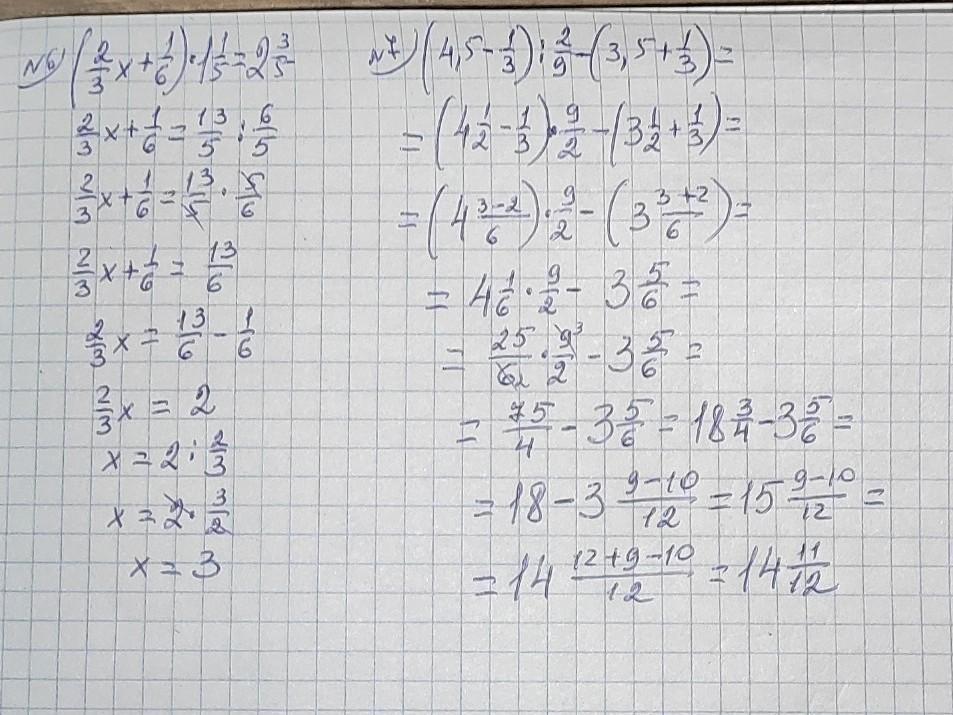 №6) (2/3 x + 1/6) · 1 1/5 = 2 3/5
2/3 x + 1/6 = 13/5 : 6/5
2/3 x + 1/6 = 13/5 · 5/6
2/3 x + 1/6 = 13/6
2/3 x = 13/6 - 1/6
2/3 x = 2
x = 2 : 2/3
x = 2 · 3/2
x = 3
№7) (4,5 - 1/3) : 2/9 - (3,5 + 1/3) =
= (4 1/2 - 1/3) · 9/2 - (3 1/2 + 1/3) =
= (4 3-2/6) · 9/2 - (3 3+2/6) =
= 4 1/6 · 9/2 - 3 5/6 =
= 25/6 2 · 9 3/2 - 3 5/6 =
= 75/4 - 3 5/6 = 18 3/4 - 3 5/6 =
= 18 - 3 9-10/12 = 15 9-10/12 =
= 14 12+9-10/12 = 14 11/12